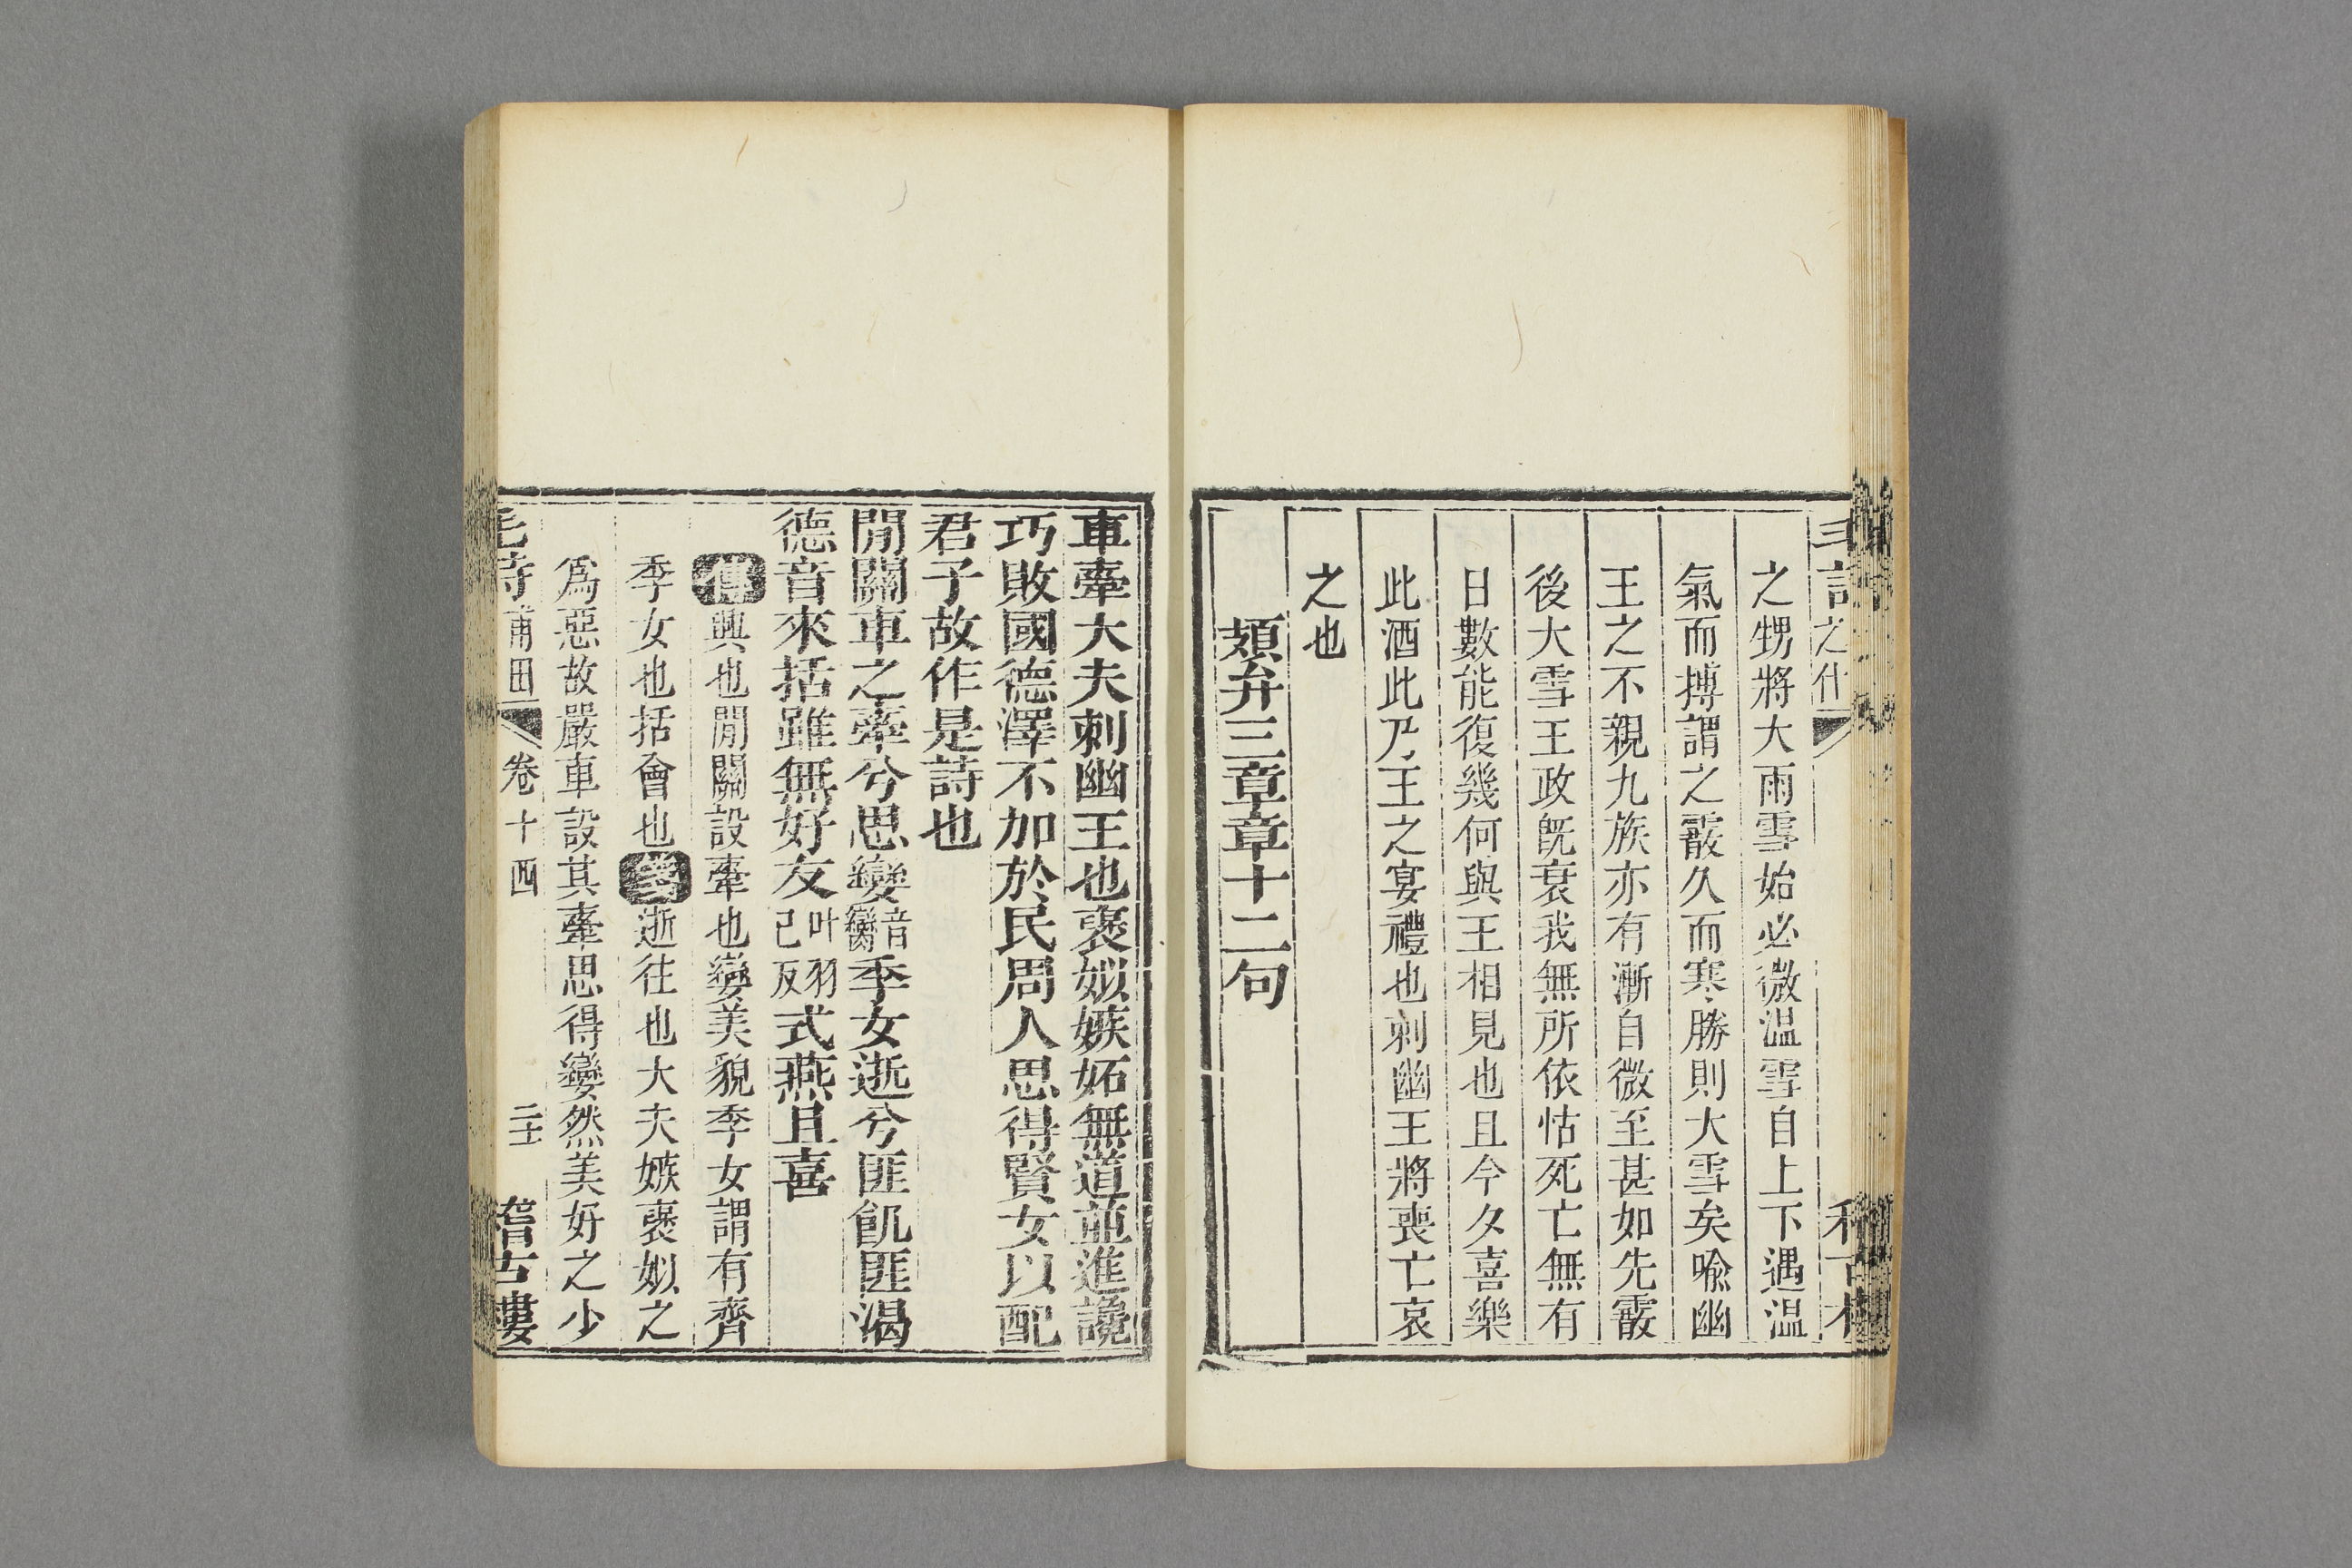 之甥將大雨雪始必微温雪自上下遇温
氣而搏謂之霰久而寒勝則大雪矣喻幽
王之不親九族亦有漸自微至甚如先霰
後大雪王政既衰我無所依怙死亡無有
日數能復幾何與王相見也且今夕喜樂
此酒此乃王之宴禮也刺幽王將喪亡哀
之也
頍弁三章章十二句
車舝大夫刺幽王也褒姒嫉妬無道並進讒
巧敗國德澤不加於民周人思得賢女以配
君子故作是詩也
閒關車之舝兮思孌音臠季女逝兮匪飢匪渴
德音來括雖無好友叶羽己反式燕且喜
傳興也閒關設舝也孌美貌季女謂有齊
季女也括會也箋逝往也大夫嫉褒姒之
爲惡故嚴車設其舝思得孌然美好之少
毛詩甫田 卷十四 二十 稽古樓